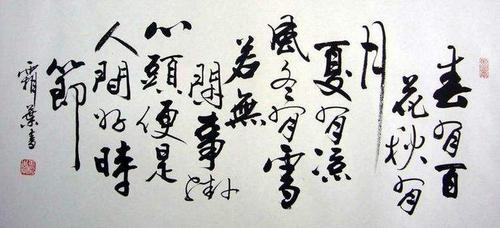 春有百
花秋有
月
夏有涼
風冬有雪
若無
閑事掛
心頭便是
人間好時
節
霜葉書